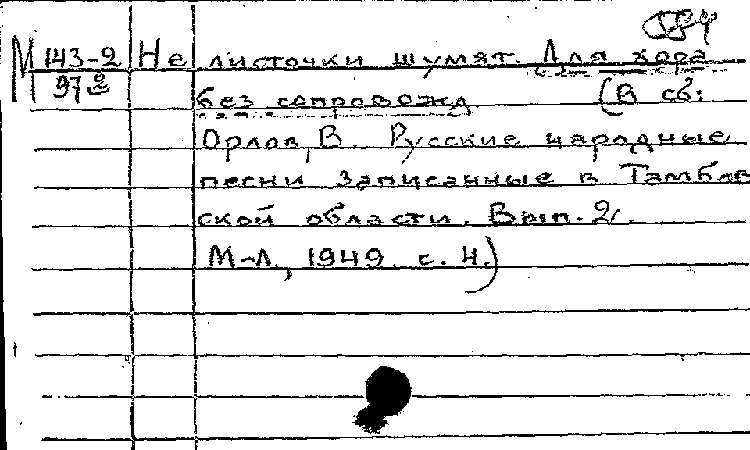 М 143-2 Не листочки шумят. Для хора
97 без сопровожд (В сб:
Орлов, В. Русские народные
песни записанные в Тамбов
ской области. Вып. 2.
М-Л, 1949 с. 4.)